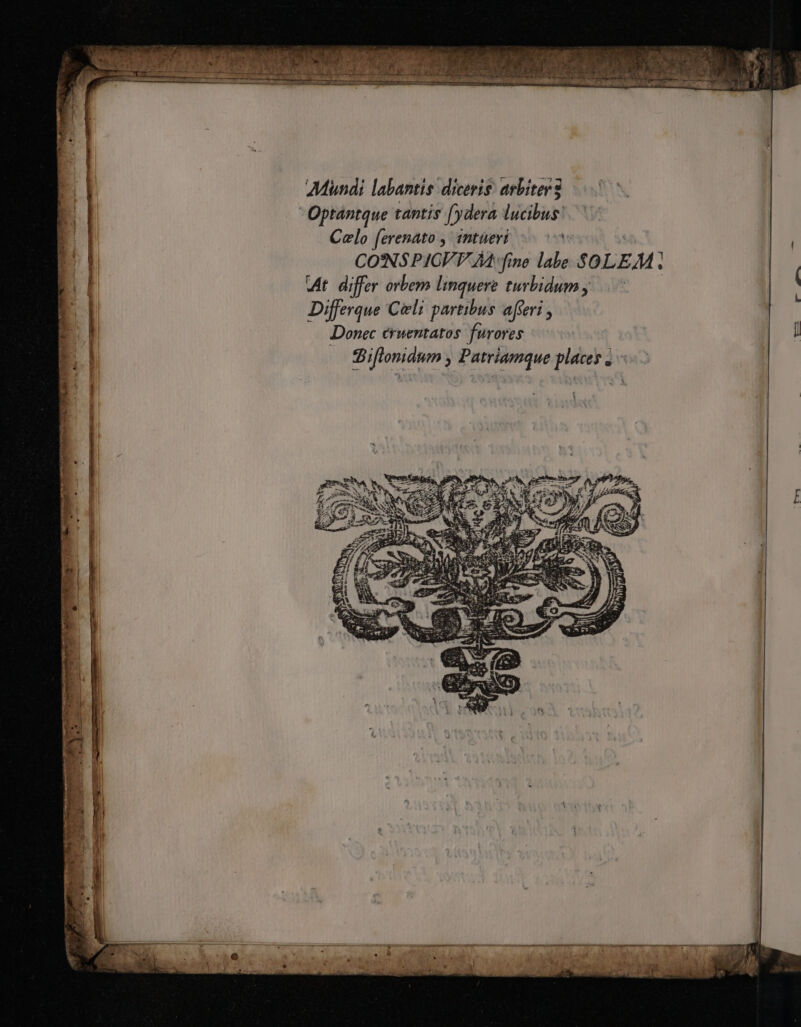 Mundi labantis diceris arbiter:
Optantque tantis ſydera lucibus
Cælo ſerenato, intueri
CONSPICVVM ſine labe SOLEM:
At differ orbem linquere turbidum,
Differque Cæli partibus aſſeri,
Donec cruentatos furores
Biſtonidum, Patriamque places.